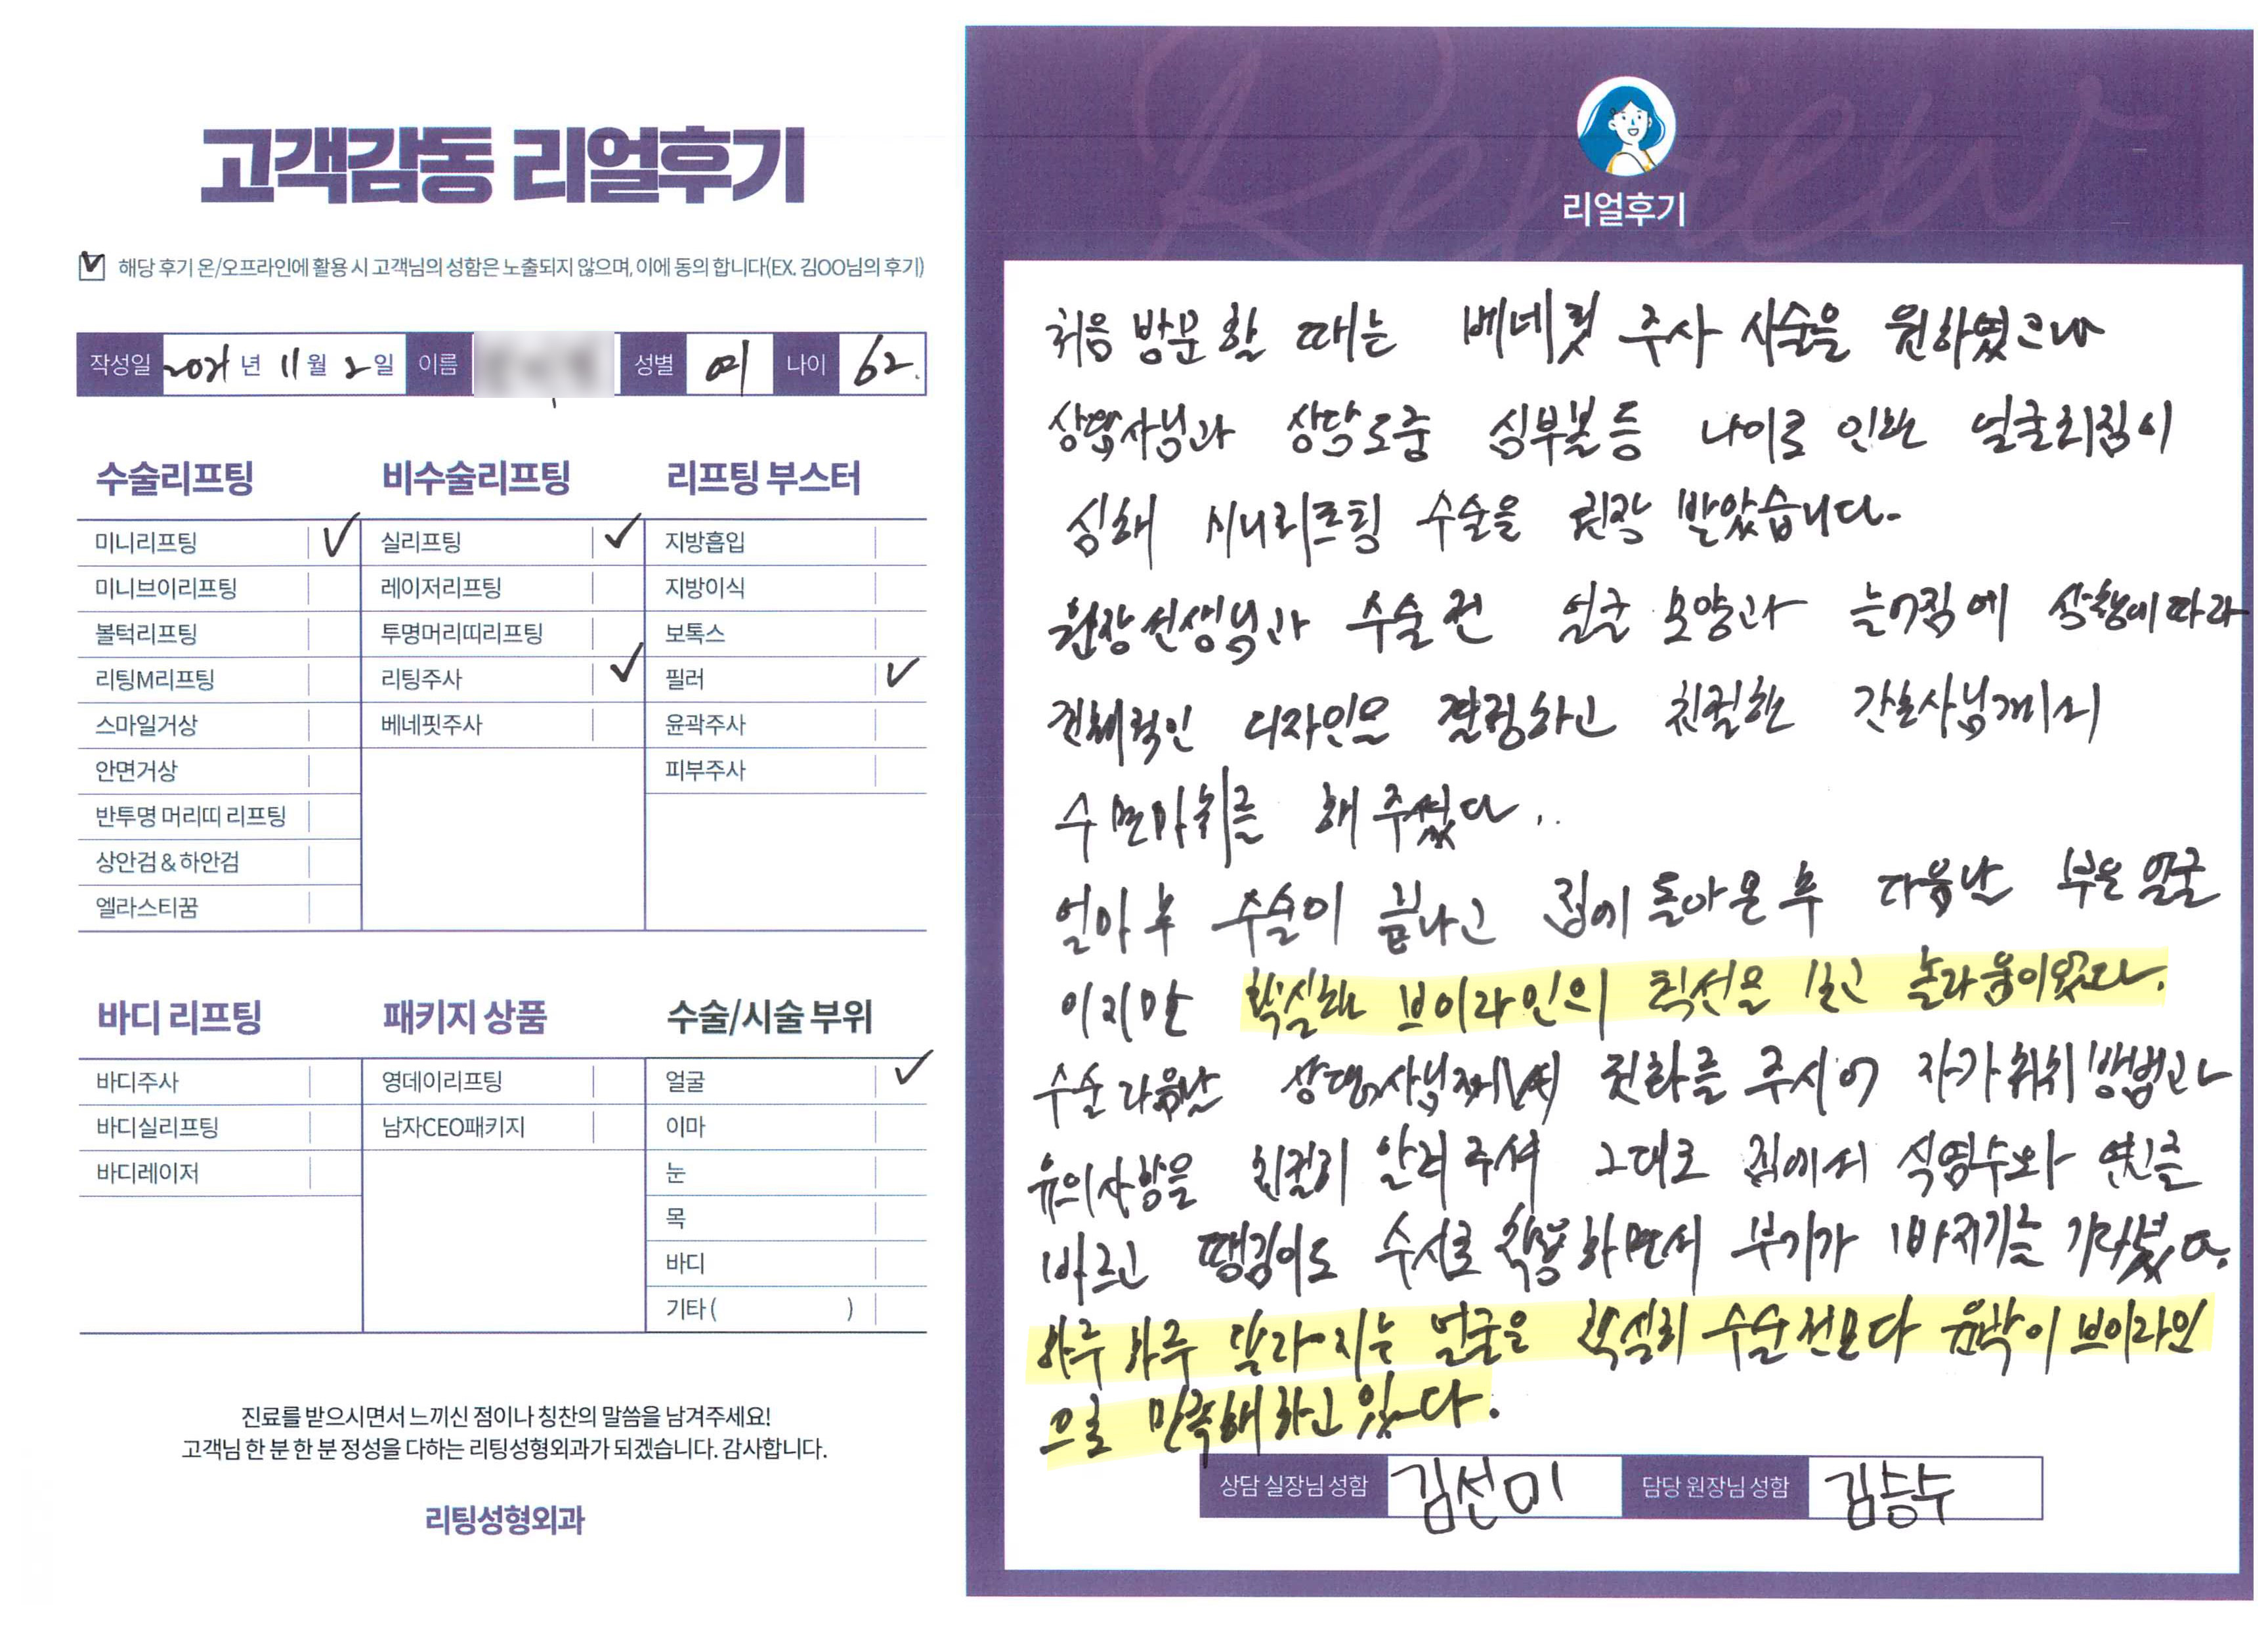 고객감동 리얼후기
해당 후기 온/오프라인에 활용 시 고객님의 성함은 노출되지 않으며, 이에 동의 합니다(EX. 김OO님의 후기)
작성일 2021년 11월 2일 이름 성별 여 나이 62.
수술리프팅
미니리프팅
미니브이리프팅
볼턱리프팅
리팅M리프팅
스마일거상
안면거상
반투명 머리띠 리프팅
상안검 & 하안검
엘라스티꿈
비수술리프팅
실리프팅
레이저리프팅
투명머리띠리프팅
리팅주사
베네핏주사
리프팅 부스터
지방흡입
지방이식
보톡스
필러
윤곽주사
피부주사
바디 리프팅
바디주사
바디실리프팅
바디레이저
패키지 상품
영데이리프팅
남자CEO패키지
수술/시술 부위
얼굴
이마
눈
목
바디
기타 ( )
진료를 받으시면서 느끼신 점이나 칭찬의 말씀을 남겨주세요!
고객님 한 분 한 분 정성을 다하는 리팅성형외과가 되겠습니다. 감사합니다.
리팅성형외과
Review
리얼후기
처음 방문할 때는 베네핏 주사 시술을 원하였으나
상담사님과 상담도중 심부볼등 나이로 인한 얼굴쳐짐이
심해 미니리프팅 수술을 권장 받았습니다.
원장선생님과 수술전 얼굴 모양과 늘어짐에 상황에따라
전체적인 디자인을 결정하고 친절한 간호사님께서
수면마취를 해 주셨다..
얼마 후 수술이 끝나고 집에 돌아온 후 다음날 부은 얼굴
이지만 확실한 브이라인의 턱선을 보고 놀라움이었다.
수술 다음날 상담사님께서 전화를 주시어 자가 처치 방법과
유의사항을 친절히 알려주셔 그대로 집에서 식염수와 연고를
바르고 땡김이도 수시로 착용하면서 부기가 빠지기를 기다렸다.
하루 하루 달라지는 얼굴은 확실히 수술전보다 윤곽이 브이라인
으로 만족해하고 있다.
상담 실장님 성함 김선미 담당 원장님 성함 김승수